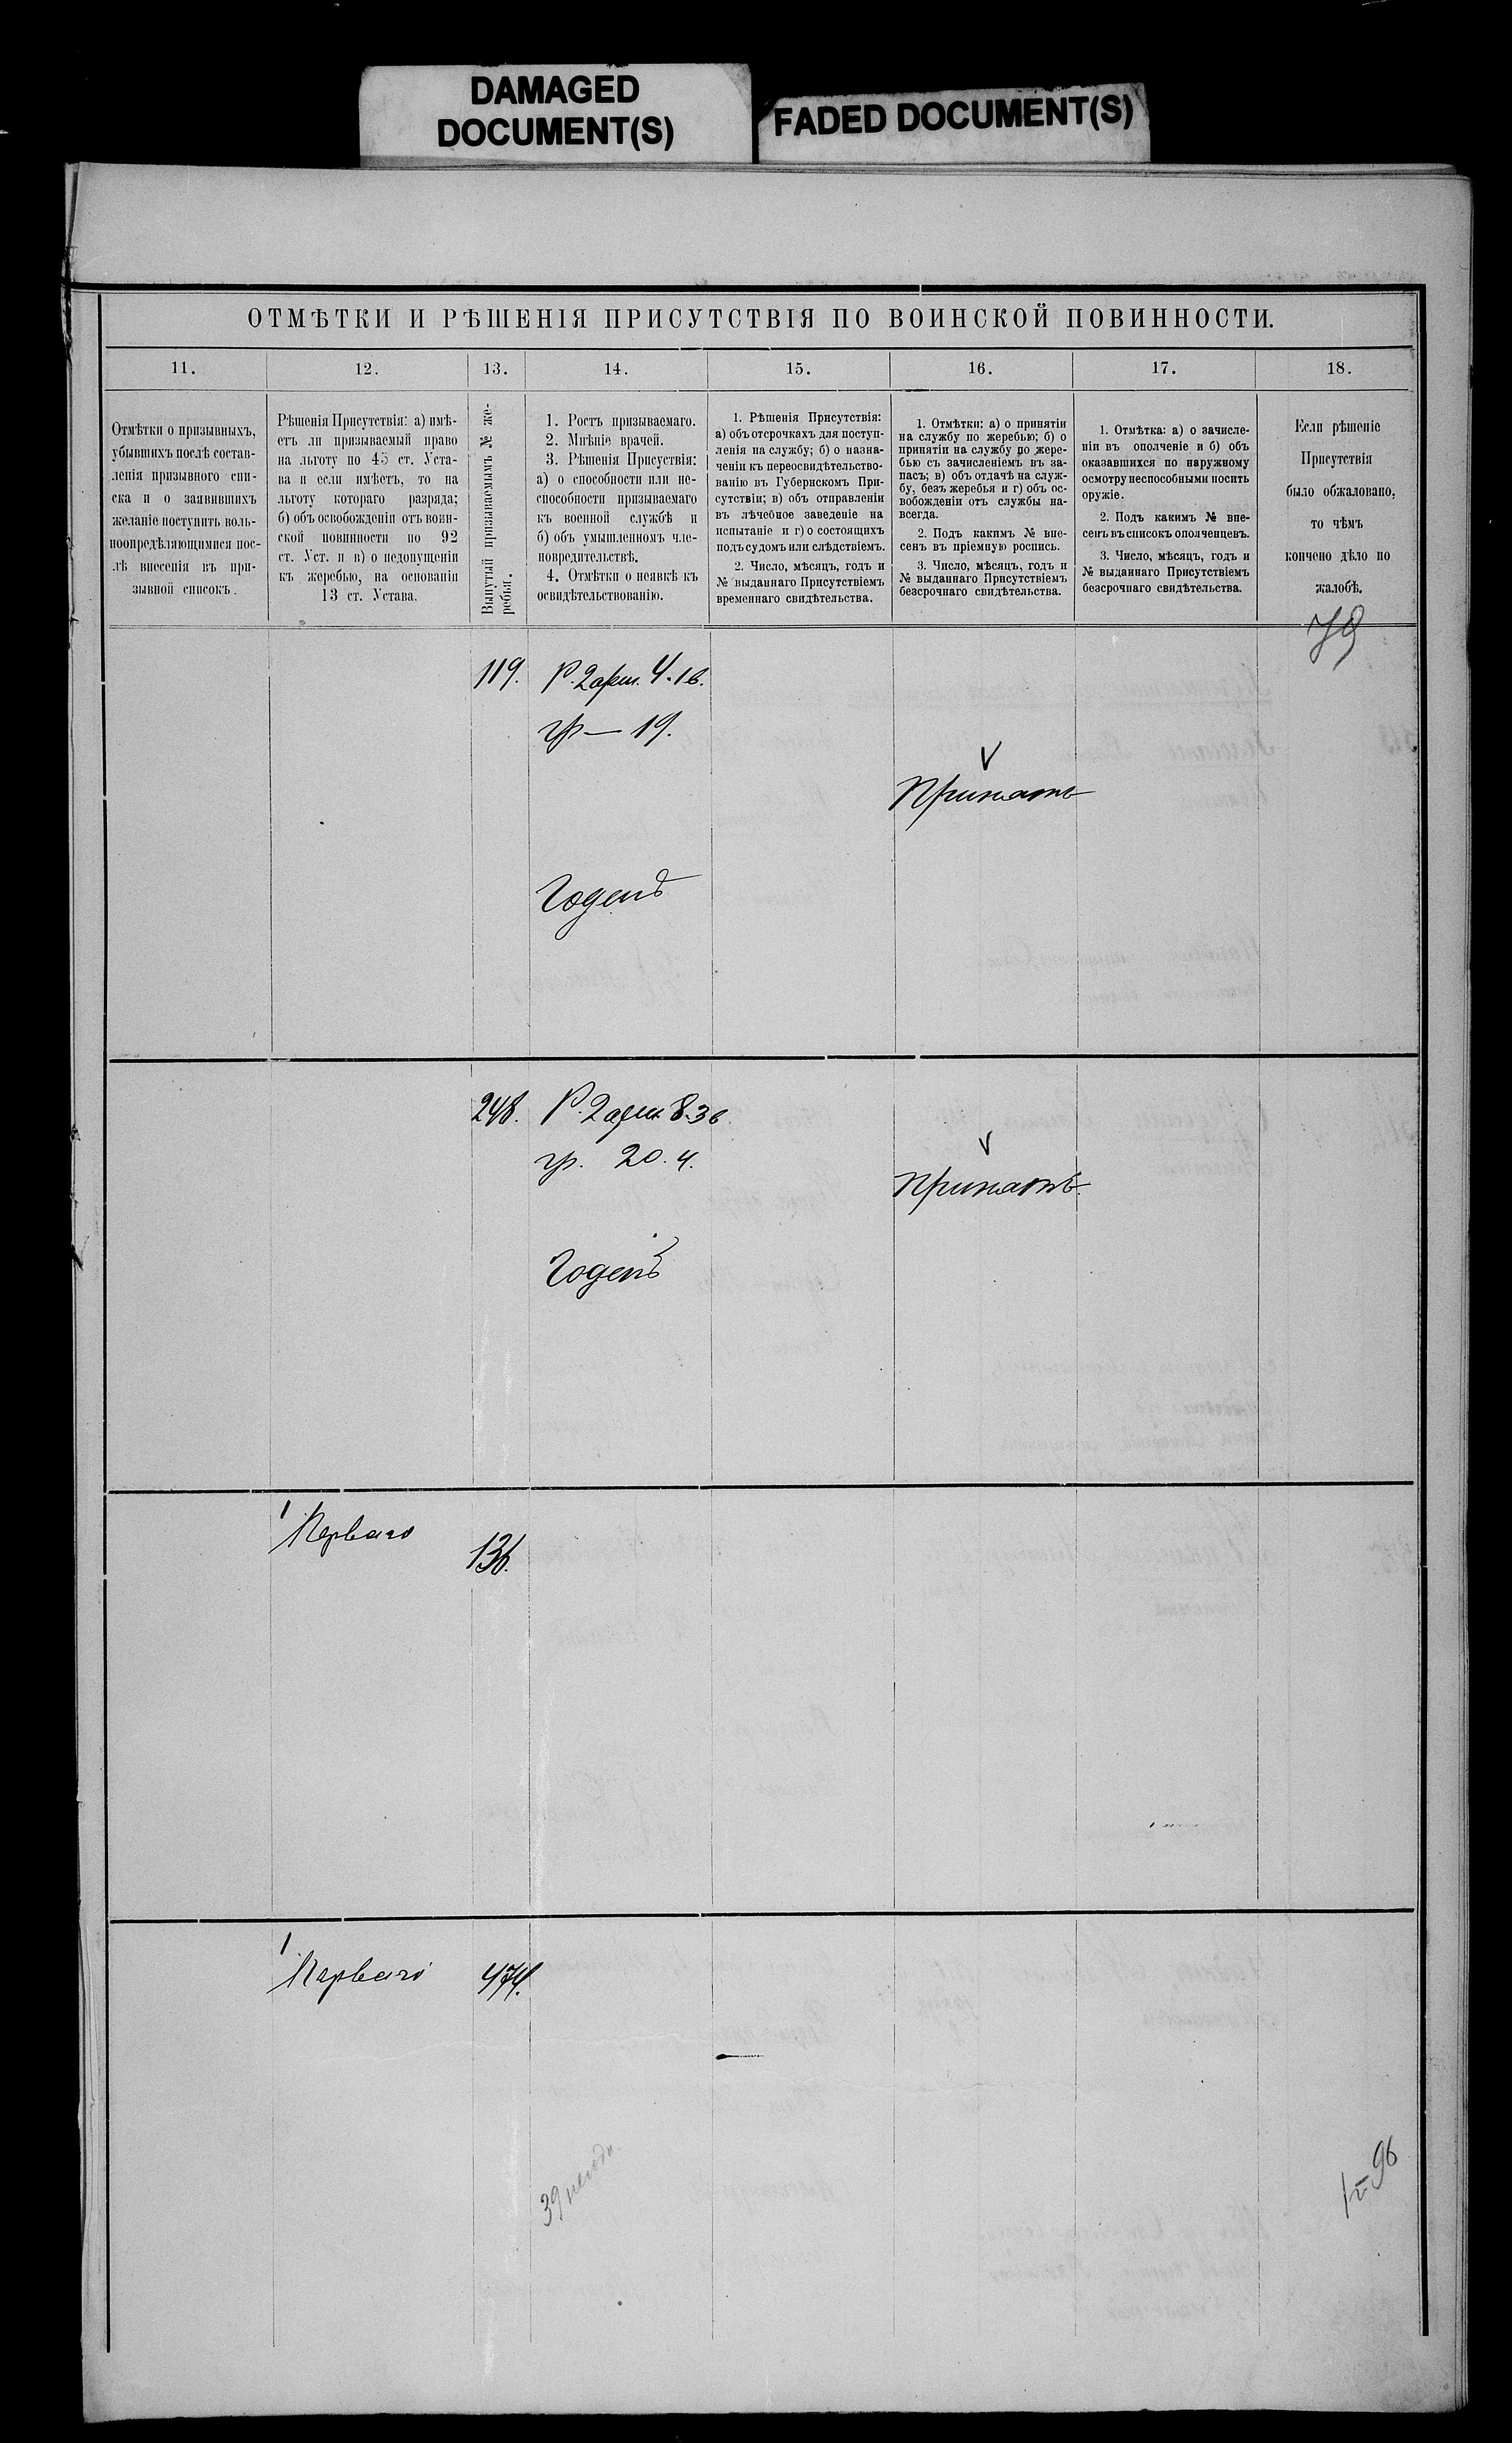 DAMAGED
DOCUMENT(S)
FADED DOCUMENT(S)
ОТМѢТКИ И РѢШЕНІЯ ПРИСУТСТВІЯ ПО ВОИНСКОЙ ПОВИННОСТИ.
11.
12.
13.
14.
15.
16.
17.
18.
Отмѣтки о призывныхъ,
убывшихъ послѣ состав-
ленія призывного спи-
ска и о заявившихъ
желаніе поступить воль-
ноопредѣляющимися пос-
лѣ внесенія въ при-
зывной списокъ.
Рѣшенія Присутствія: а) имѣ-
етъ ли призываемый право
на льготу по 45 ст. Уста-
ва и если имѣетъ, то на
льготу котораго разряда;
б) объ освобожденіи отъ воин-
ской повинности по 92
ст. Уст. и в) о недопущеніи
къ жеребью, на основаніи
13 ст. Устава.
Вынутый призываемымъ № же-
ребья.
1. Ростъ призываемаго.
2. Мнѣніе врачей.
3. Рѣшенія Присуствія:
а) о способности или не-
способности призываемаго
къ военной службѣ и
б) объ умышленномъ чле-
новредительствѣ.
4. Отмѣтки о неявкѣ къ
освидѣтельствованію.
1. Рѣшенія Присутствія:
а) объ отсрочкахъ для поступ-
ленія на службу; б) о назна-
ченіи къ переосвидѣтельство-
ванію въ Губернскомъ При-
сутствіи; в) объ отправленіи
въ лѣчебное заведеніе на
испытаніе и г) о состоящихъ
подъ судомъ или слѣдствіемъ.
2. Число, мѣсяцъ, годъ и
№ выданнаго Присутствіемъ
временнаго свидѣтельства.
1. Отмѣтки: а) о принятіи
на службу по жеребью; б) о
принятіи на службу по жере-
бью съ зачисленіемъ въ за-
пасъ; в) объ отдачѣ на служ-
бу, безъ жеребья и г) объ ос-
вобожденіи отъ службы на-
всегда.
2. Подъ какимъ № вне-
сенъ въ пріемную роспись.
3. Число, мѣсяцъ, годъ и
№ выданнаго Присутствіемъ
безсрочнаго свидѣтельства.
1. Отмѣтка: а) о зачисле-
ніи въ ополченіе и б) объ
оказавшихся по наружному
осмотру неспособными носить
оружіе.
2. Подъ какимъ № вне-
сенъ въ списокъ ополченцевъ.
3. Число, мѣсяцъ, годъ и
№ выданнаго Присутствіемъ
безсрочнаго свидѣтельства.
Если рѣшеніе
Присутствія
было обжаловано,
то чѣмъ
кончено дѣло по
жалобѣ.
119. Р. 2 арш. 4 1 в.
гр — 19.
Принятъ
Годенъ
248. Р. 2 арш 8.3 в.
гр. 20.4.
Принятъ.
Годенъ
1
Перваго
136.
1
Перваго 474.